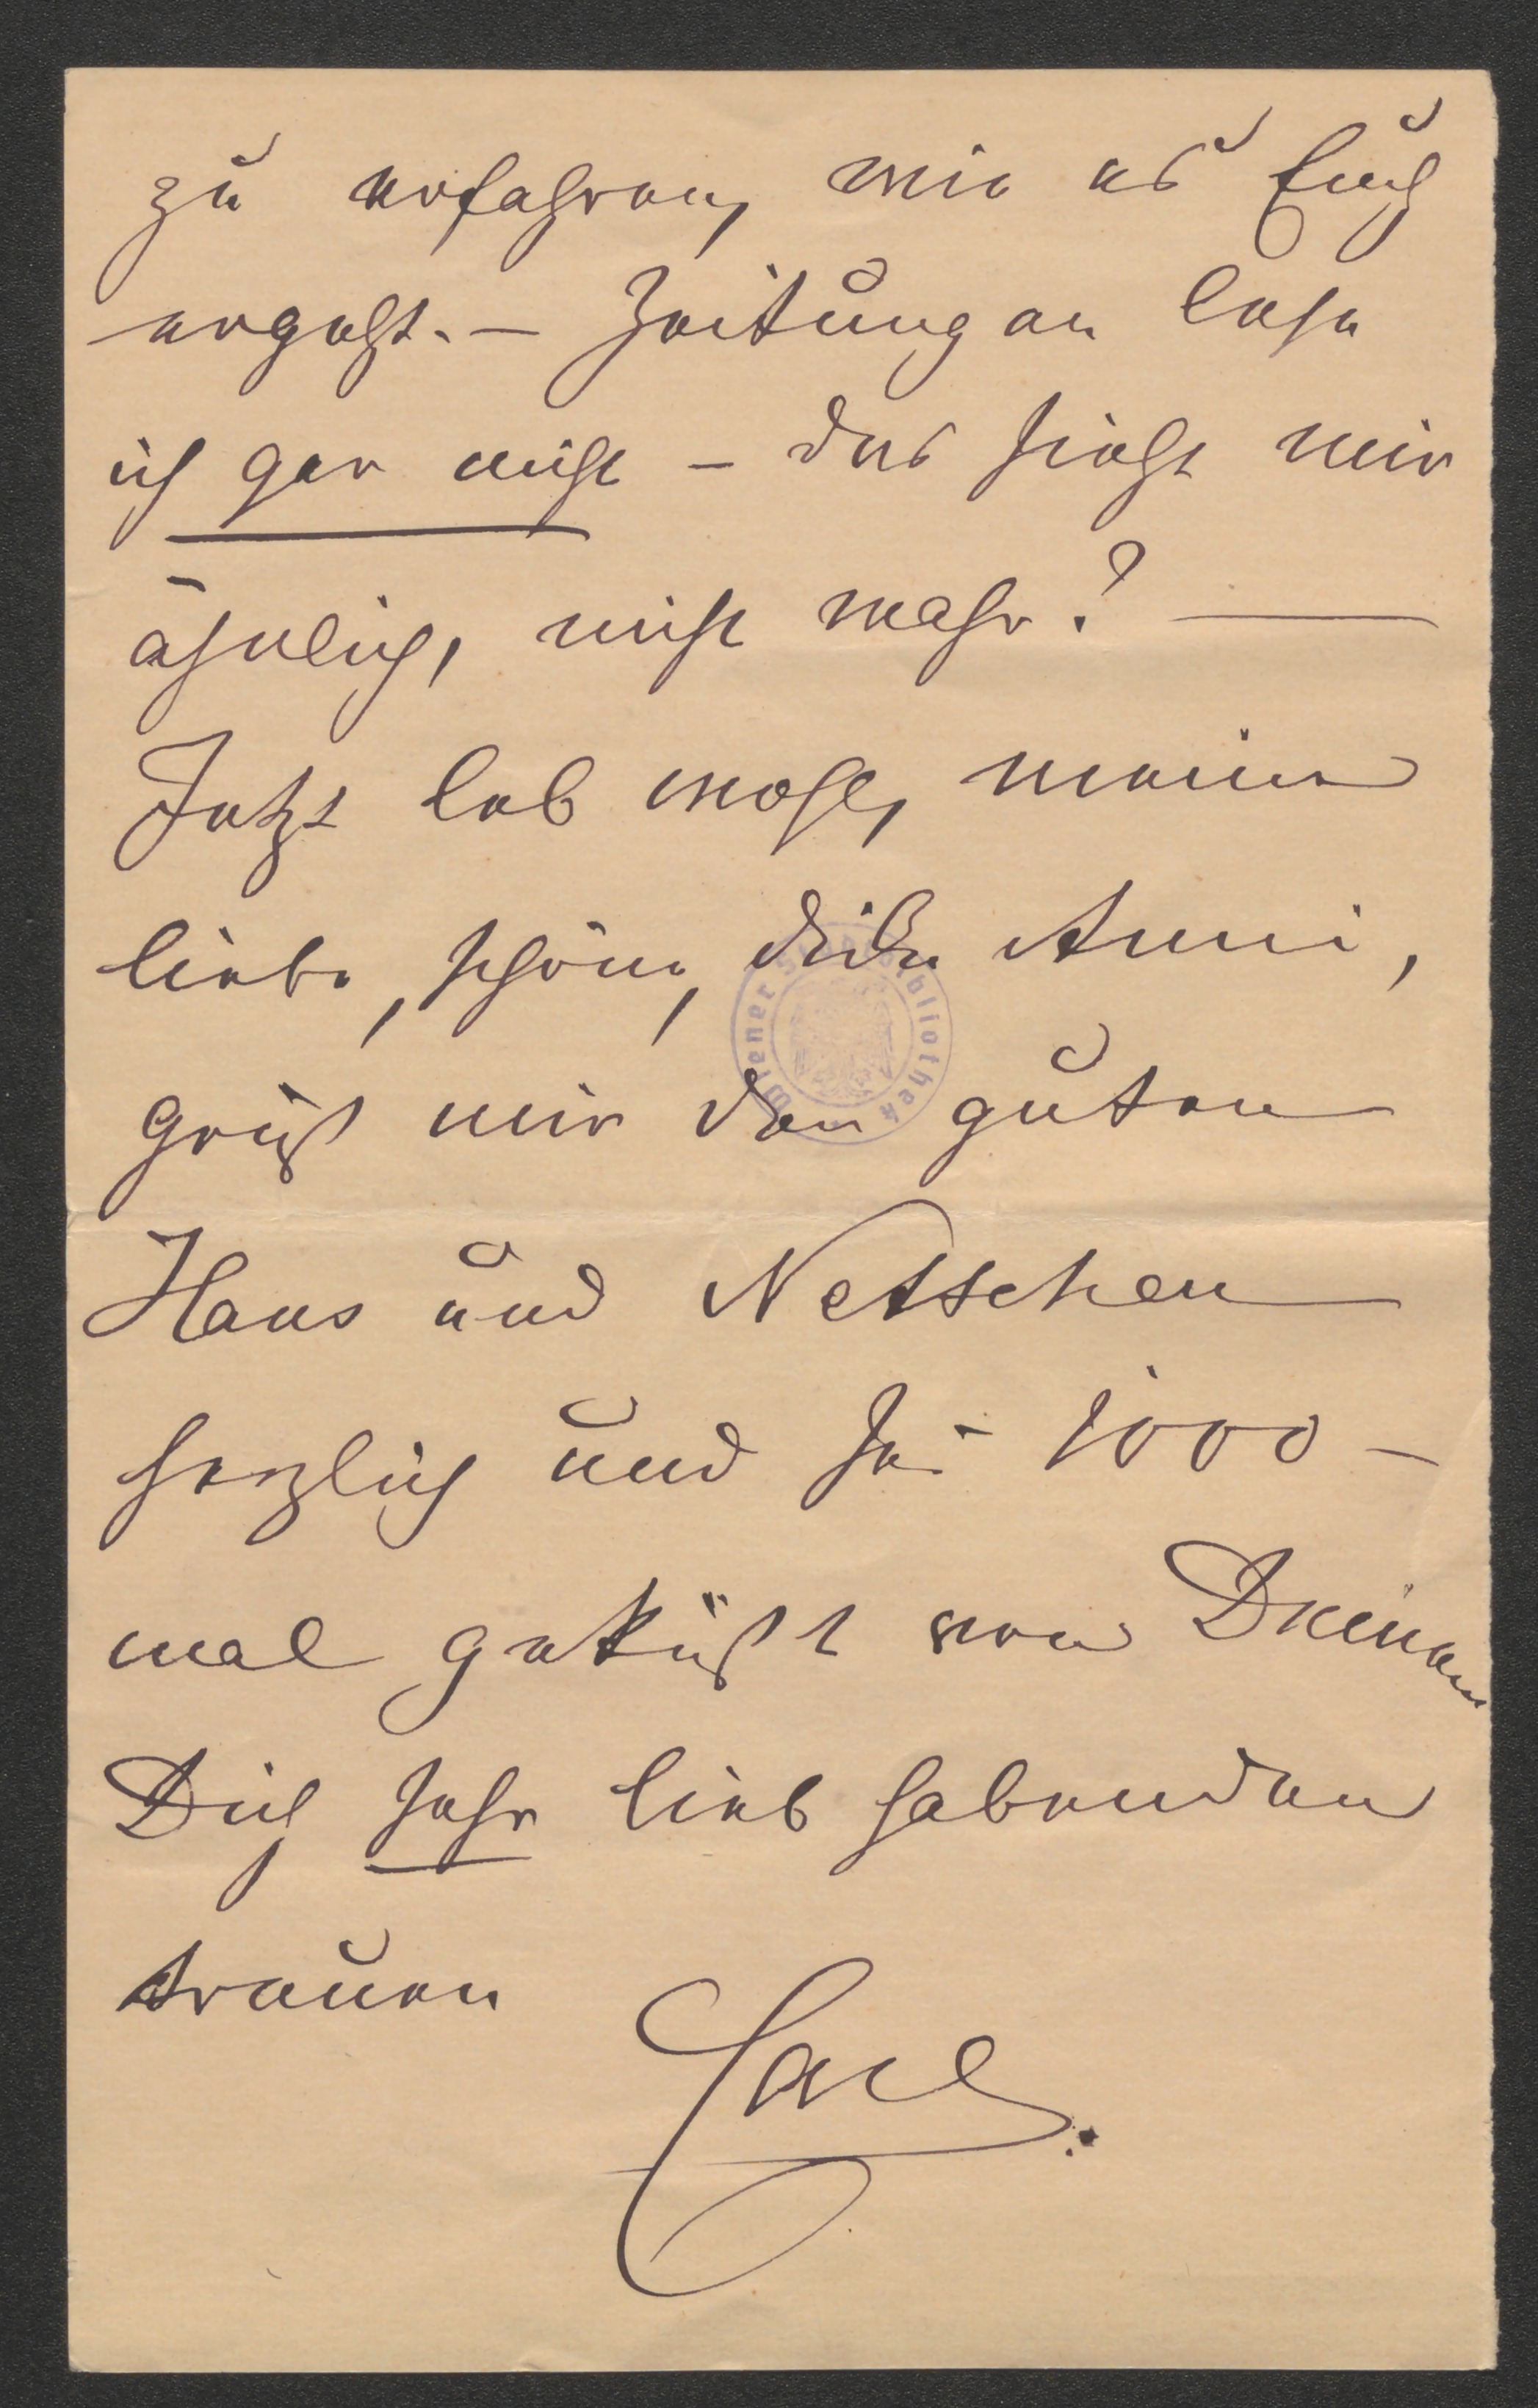 zu erfahren, wie es Euch
ergeht. – Zeitungen lese
ich gar nicht – das sieht mir
ähnlich, nicht wahr? —
Jetzt leb wohl, meine
liebe, schöne, dicke Anni,
grüß mir den guten
Hans und Nettchen
herzlich und sei 1000 –
mal geküßt von Deinem
Dich sehr lieb habenden
treuen
Carl.
Wiener Stadtbibliothek